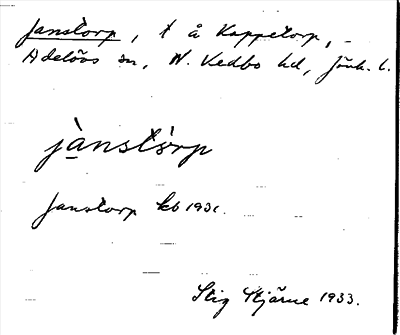 Janstorp, t å Koppetorp, -
Adelövs sn, N. Vedbo hd, Jönk. l.
jànstòrp
Janstorp kb 1931.
Stig Stjärne 1933.